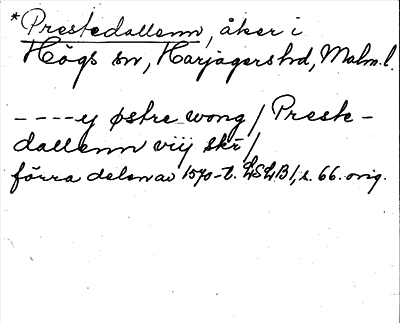 *Prestedallenn, åker i
Högs sn, Harjagers hd, Malm. l.
----y østre wong / Preste-
dallenn viij skr /
förra delen av 1570-t. LSLB 1, s. 66. orig.